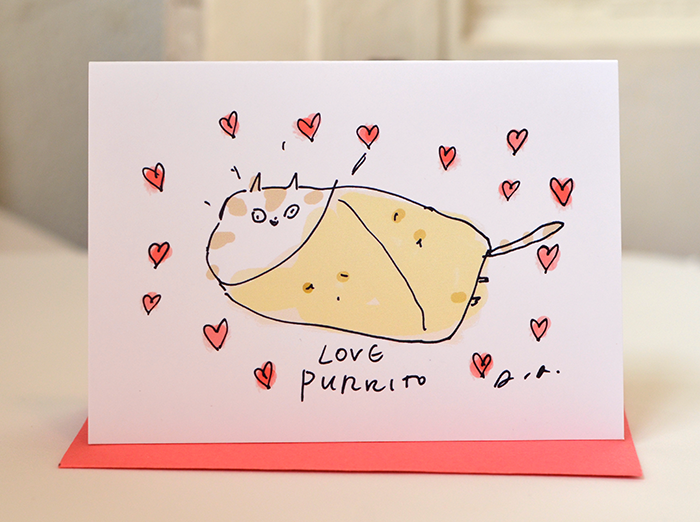 LOVE
PURRITO